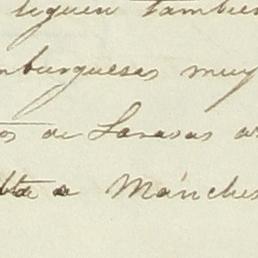 siguen tambien
mburguesas muy
os de Larasas
a Mánches